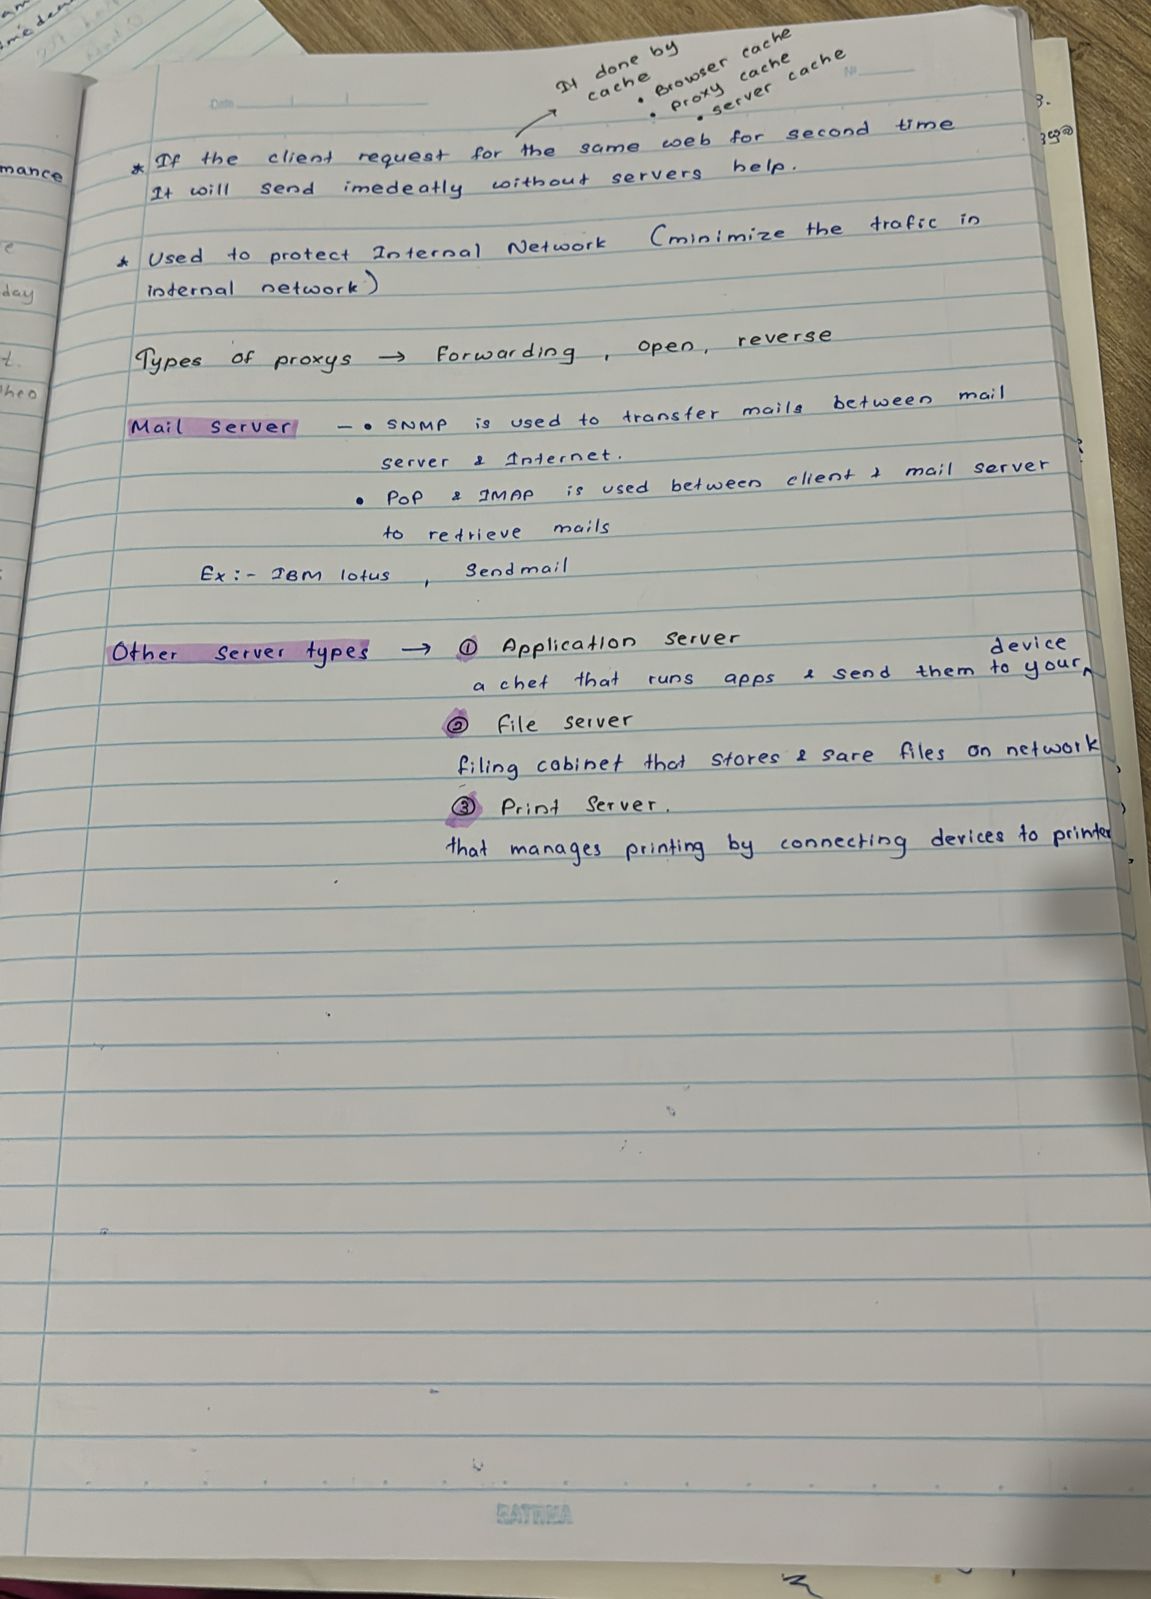 It done by
cache
• Browser cache
• proxy cache
• server cache
Date
No
* If the client request for the same web for second time
It will send imedeatly without servers help.
* Used to protect Internal Network (minimize the trafic in
internal network)
Types of proxys → forwarding, open, reverse
Mail server – • SNMP is used to transfer mails between mail
server & Internet.
• POP & IMAP is used between client & mail server
to retrieve mails
Ex:- IBM lotus, Sendmail
Other server types → ① Application server
device
a chef that runs apps & send them to your ^
② file server
filing cabinet that stores & sare files on network
③ Print Server.
that manages printing by connecting devices to printer
RATHNA
mance
e
day
t.